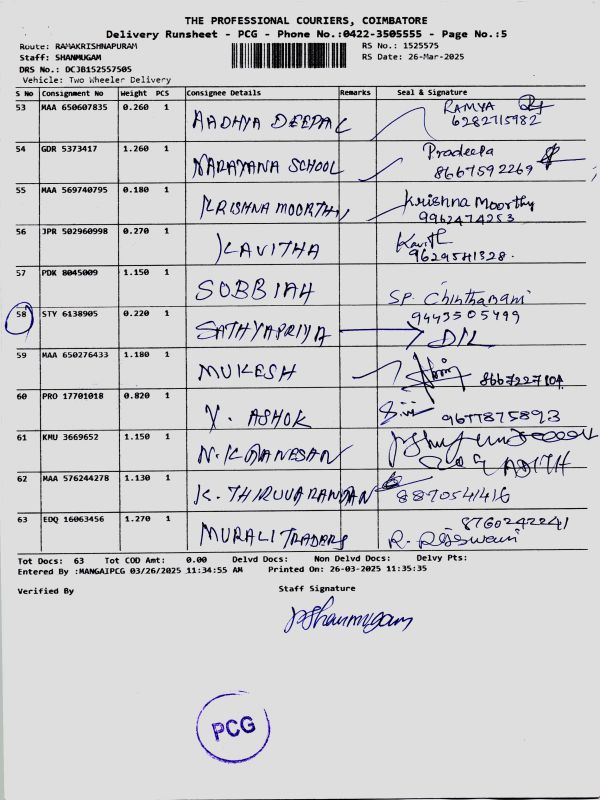 THE PROFESSIONAL COURIERS, COIMBATORE
Delivery Runsheet - PCG - Phone No.:0422-3505555 - Page No.:5
Route: RAMAKRISHNAPURAM RS No.: 1525575
Staff: SHANMUGAM RS Date: 26-Mar-2025
DRS No.: DCJB152557505
Vehicle: Two Wheeler Delivery
S No Consignment No Weight PCS Consignee Details Remarks Seal & Signature
53 MAA 650607835 0.260 1 AADHYA DEEPAK RAMYA
6282715982
54 GDR 5373417 1.260 1 NARAYANA SCHOOL Pradeepa
8667592269
55 MAA 569740795 0.180 1 KRISHNA MOORTHI Krishna Moorthy
9962474253
56 JPR 502960998 0.270 1 KAVITHA Kavith
9629541328.
57 PDK 8045009 1.150 1 SUBBIAH SP. Chinthamani
9443505499
58 STY 6138905 0.220 1 SATHYAPRIYA D/L
59 MAA 650276433 1.180 1 MUKESH 8667227104
60 PRO 17701018 0.820 1 V. ASHOK 9677875893
61 KMU 3669652 1.150 1 N.K GANESAN
ADITH
62 MAA 576244278 1.130 1 K. THIRUVARANDAN 8870541416
63 EDQ 16063456 1.270 1 MURALI TRADERS 8760242241
R. Rajeswari
Tot Docs: 63 Tot COD Amt: 0.00 Delvd Docs: Non Delvd Docs: Delvy Pts:
Entered By :MANGAIPCG 03/26/2025 11:34:55 AM Printed On: 26-03-2025 11:35:35
Verified By Staff Signature
P Shanmugam
PCG